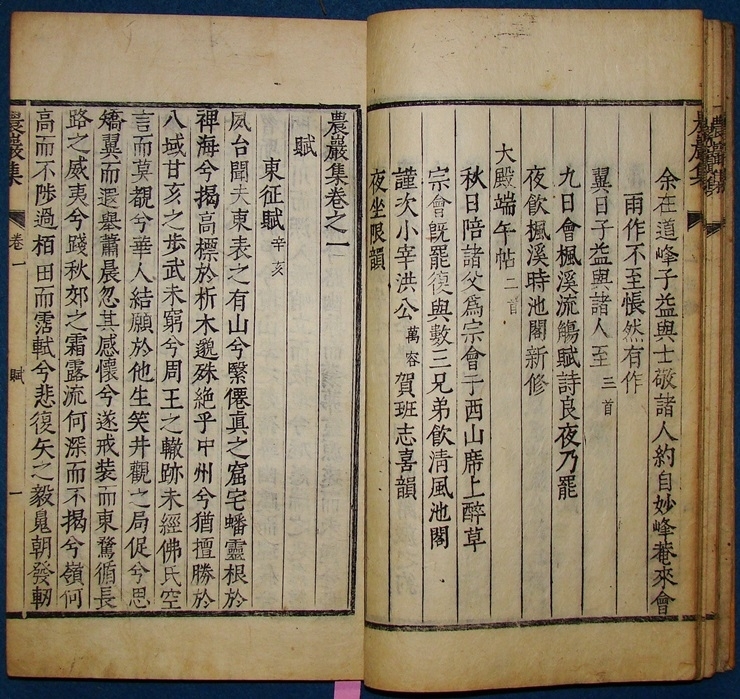 余在道峰子益與士敬諸人約自妙峰菴來會
雨作不至悵然有作
翼日子益與諸人至 三首
九日會楓溪流觴賦詩良夜乃罷
夜飲楓溪時池閣新修
大殿端午帖 二首
秋日陪諸父爲宗會于西山席上醉草
宗會旣罷復與數三兄弟飮清風池閣
謹次小宰洪公 萬容 賀班志喜韻
夜坐限韻
農巖集卷之一
賦
東征賦 辛亥
夙台聞夫東表之有山兮繄僊眞之窟宅蟠靈根於
裨海兮揭高標於析木邈殊絶乎中州兮猶擅勝於
八域甘亥之步武未窮兮周王之轍跡未經佛氏空
言而莫覩兮華人結願於他生笑井觀之局促兮思
矯翼而遐舉蕭晨忽其感懷兮遂戒裝而東騖循長
路之威夷兮踐秋郊之霜露流何深而不揭兮嶺何
高而不陟過栢田而霑軾兮悲復矢之毅鬼朝發軔
農巖集
卷一
賦
一